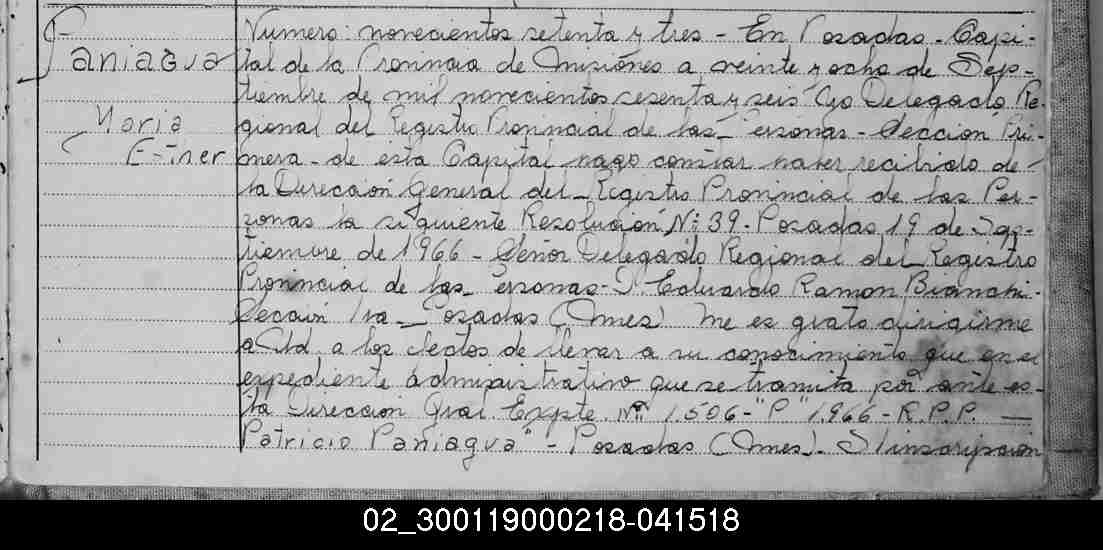 Paniagua
Maria
Ester
Numero: novecientos setenta y tres - En Posadas - Capi-
tal de la Provincia de Misiones a veinte y ocho de Sep-
tiembre de mil novecientos sesenta y seis Yo Delegado Re-
gional del Registro Provincial de las Personas - Sección Pri-
mera - de esta Capital hago constar haber recibido de
la Dirección General del Registro Provincial de las Per-
sonas la siguiente Resolución Nº 39 - Posadas 19 de Sep-
tiembre de 1966 - Señor Delegado Regional del Registro
Provincial de las Personas - D. Eduardo Ramon Bianchi -
Sección 1ra - Posadas (Mnes) Me es grato dirigirme
a Ud. a los efectos de llevar a su conocimiento que en el
expediente administrativo que se tramita por ante es-
ta Dirección Gral Expte. Nº 1.506 - "P" 1.966 - R.P.P. —
Patricio Paniagua" - Posadas (Mnes). S/inscripción
02_300119000218-041518